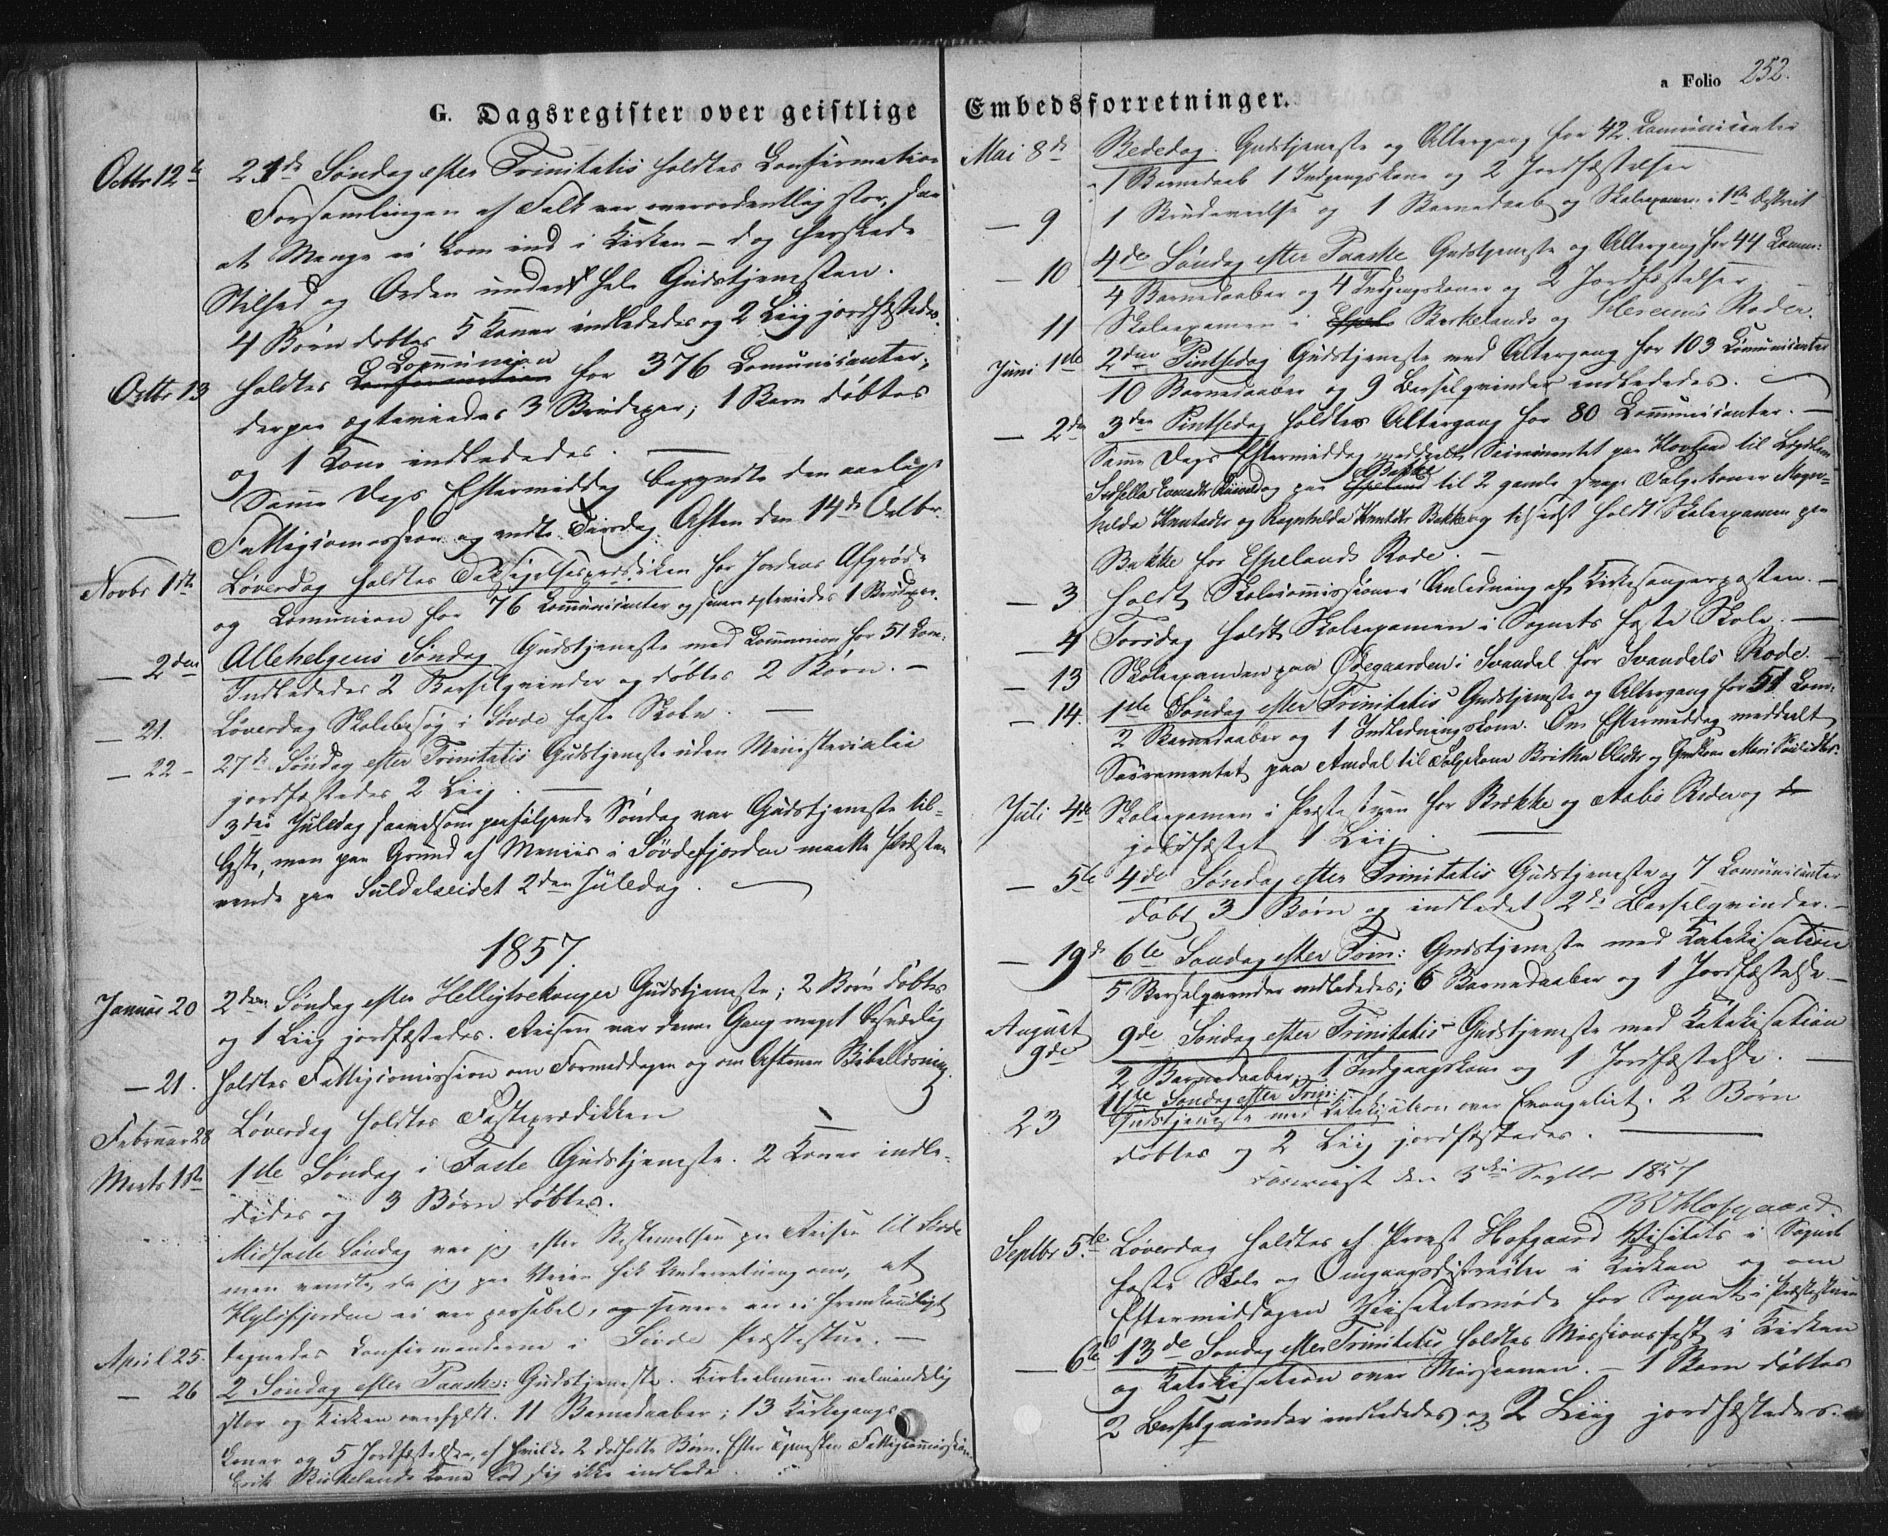 G. Dagsregister over geistlige
Octbr 12te 21de Søndag efter Trinitatis holdtes Confirmation
Forsamlingen af Folk var overordentlig stor, saa
at Mange ei kom ind i Kirken – dog herskede
Stilhed og Orden under hele Gudstjenesten.
4 Børn døbtes 5 Koner indledes og 2 Liig jordfæstedes.
Communion
Octbr 13 holdtes Confirmation for 376 Comunicanter,
derpaa ægteviedes 3 Brudepar; 1 Barn døbtes
og 1 Kone indledes. —
— Samme Dags Eftermiddag begyndte den aarlige
Fattigcomission og endte Tirsdag Aften den 14de Octbr.
Novbr 1ste Løverdag holdtes Taksigelsesprædiken for Jordens Afgrøde
og Comunion for 76 Communicanter og saa ægteviedes 1 Brudepar.
— 2den Allehelgens Søndag Gudstjeneste med Communion for 51 Com:
Indledes 2 Barselqvinder og døbtes 2 Børn. —
— 21. Løverdag Skolebesøg i Søvde faste Skole. —
— 22 – 27de Søndag efter Trinitatis Gudstjeneste uden Ministerialia
jordfæstedes 2 Liig. —
3die Juledag saavelsom paafølgende Søndag var Gudstjeneste til-
lyst, men paa Grund af Meniis i Søvdefjorden maatte Præsten
vende paa Suldalseidet 2den Juledag.
1857.
Januar 20 2den Søndag efter Helligtrekonger Gudstjeneste; 2 Børn døbtes
og 1 Liig jordfæstedes. Reisen var denne Gang meget besværlig
— 21. holdtes Fattigcomission om Formiddagen og om Aftenen Bibellæsning.
Februar 28 Løverdag holdtes Fasteprædikken
Marts 1ste 1ste Søndag i Faste Gudstjeneste. 2 Koner indle-
dedes og 3 Børn døbtes.
Midfaste Søndag var jeg efter Bestemmelsen paa Reisen til Søvde
men vendte, da jeg paa Veien fik Underretning om, at
Hylsfjorden ei var passabel, og senere var ei fremkommeligt
April 25. tegnedes Confirmanderne i Søvde Præstestue. —
— 26 2 Søndag efter Paaske: Gudstjeneste. Kirkealmuen ualmindelig
stor og Kirken overfyldt. 11 Barnedaaber; 13 Kirkegangs
Koner og 5 Jordfæstelser, af hvilke 2 dødfødte Børn. Efter Tjenesten Fattigcommission
Erik Birkelands Kone lod sig ikke indlede.
a Folio 252.
Embedsforretninger.
Mai 8de Bededag. Gudstjeneste og Altergang for 42 Comunicanter
1 Barnedaab 1 Indgangskone og 2 Jordfæstelser
— 9 1 Brudevielse og 1 Barnedaab og Skoleexamen i 1ste District
— 10 4de Søndag efter Paaske Gudstjeneste og Altergang for 44 Comm:
4 Barnedaaber og 4 Indgangskoner og 2 Jordfæstelser
11 Skoleexamen i Birkelands og Hereims Roder.
Juni 1ste 2den Pintsedag Gudstjeneste med Altergang for 103 Comunicanter
10 Barnedaaber og 9 Barselqvinder indledes.
— 2den 3den Pintsedag holdtes Altergang for 80 Communicanter. —
Samme Dags Eftermiddag meddeelt Sacramentet paa Hovland til
Bakke
og paa Espeland til 2 gamle svage Folgekoner Magn-
hilda Knutsdtr og Ragnhilda Knutsdtr Bakke og tilsidst holdt Skoleexamen paa
Bakke for Espelands Rode. —
— 3 holdt Skolecomission i Anledning af Kirkesangerposten. —
— 4 Torsdag holdt Skoleexamen i Sognets faste Skole. —
— 13 Skoleexamen paa Ødegaarden i Svandal for Svandals Rode. —
— 14. 1ste Søndag efter Trinitatis Gudstjeneste og Altergang for 51 Com:
2 Barnedaaber og 1 Indledningskone. Om Eftermiddag meddeelt
Sacramentet paa Amdal til Folgekone Britha Olsdtr og Mari
Juli 4de Skoleexamen i Præstestuen for Bakke og Aabø Roder og
jordfæstet 1 Liig. —
— 5te 4de Søndag efter Trinitatis Gudstjeneste og 7 Comunicanter
døbt 3 Børn og indledet 2de Barselqvinder. —
— 19de 6te Søndag efter Trin: Gudstjeneste med Katekisation
5 Barselqvinder indledes; 6 Barnedaaber og 1 Jordfæstelse —
August 9de 9de Søndag efter Trinitatis Gudstjeneste med Katekisation
2 Barnedaaber, 1 Indgangskone og 1 Jordfæstelse. —
11te Søndag efter Trin:
23 Gudstjeneste med Katekisation over Evangeliet. 2 Børn
døbtes og 2 Liig jordfæstedes. —
Foreviist den 5te Septbr 1857
Hofgaard.
Septbr 5te Løverdag holdtes af Provst Hofgaard Visitats i Sognets
faste Skole og Omgangsdistricter i Kirken og om
Eftermiddagen Visitatsmøde for Sognet i Præstestuen
— 6te 13de Søndag efter Trinitatis holdtes Missionsfest i Kirken
og Katekisation over Missionen. – 1 Barn døbtes
2 Barselqvinder indledes og 2 Liig jordfæstedes. —